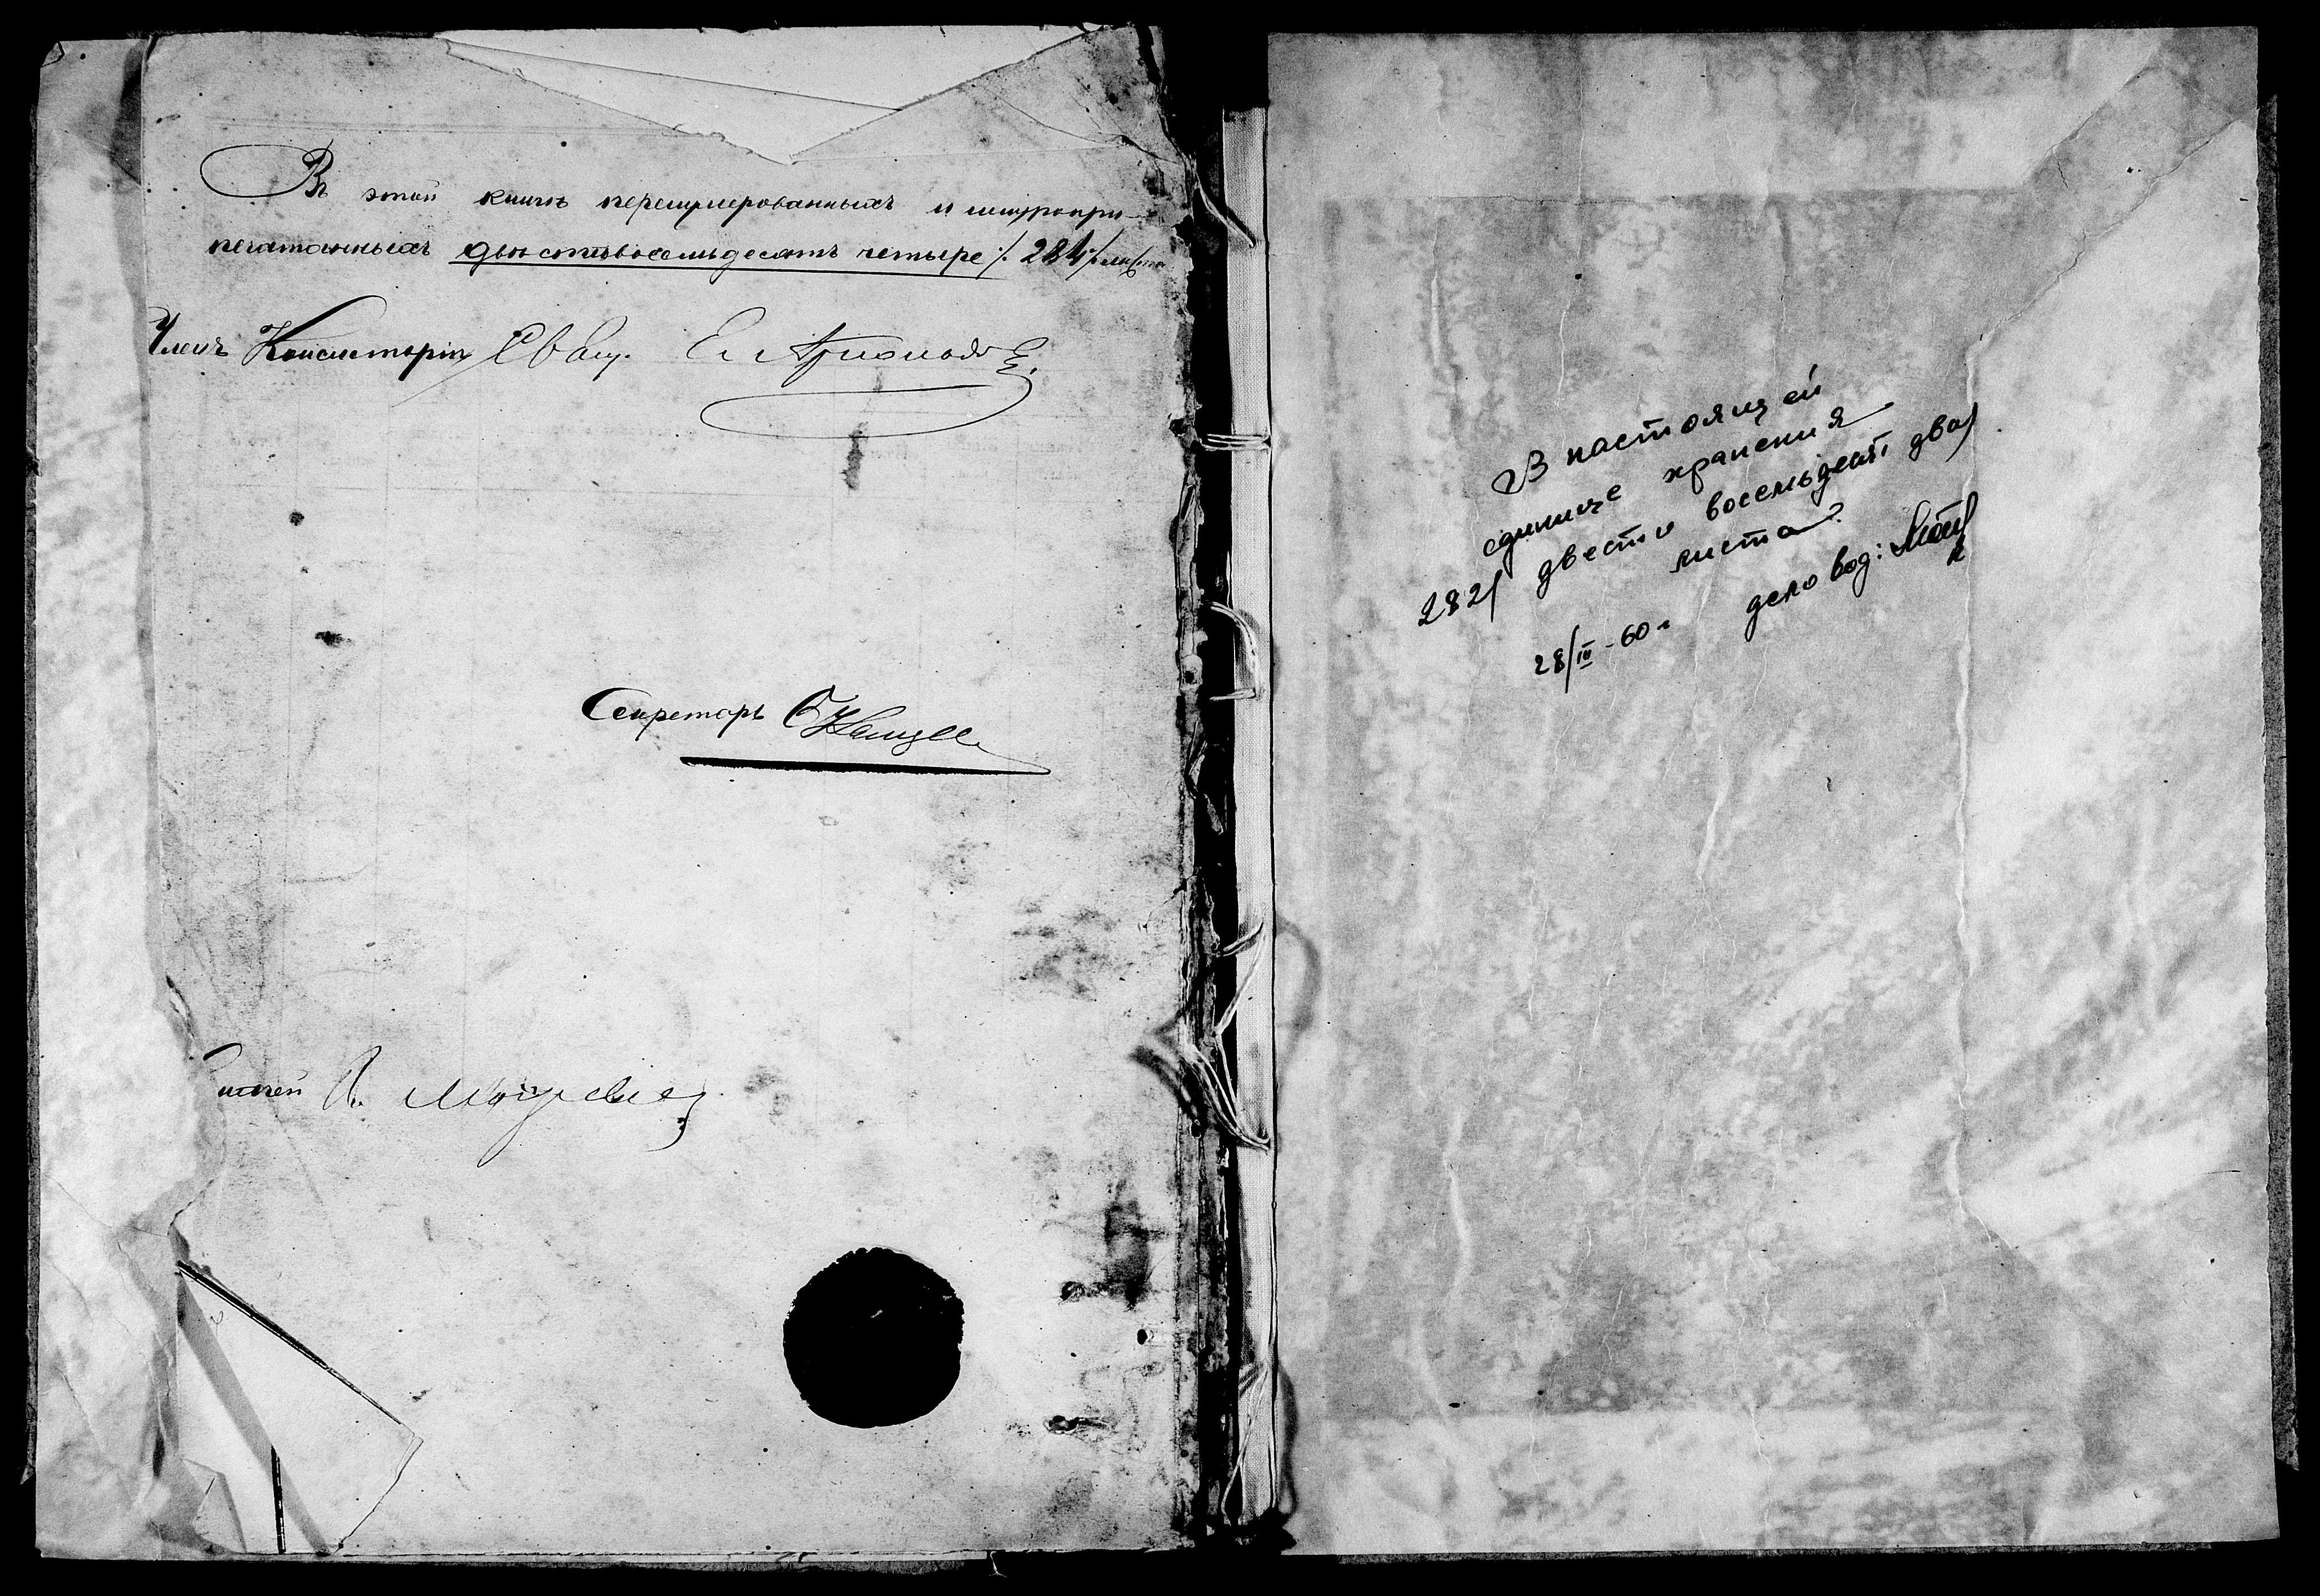 Въ этой книгѣ перенумерованныхъ и шнуропри-
печатанныхъ двѣсти восемьдесятъ четыре /. 284 /. листа
Членъ Консисторіи Свящ. Е.
Секретарь
В настоящей
единице хранения
282/ двести восемьдесят два/
листа.
28/IV-60 г деловод: